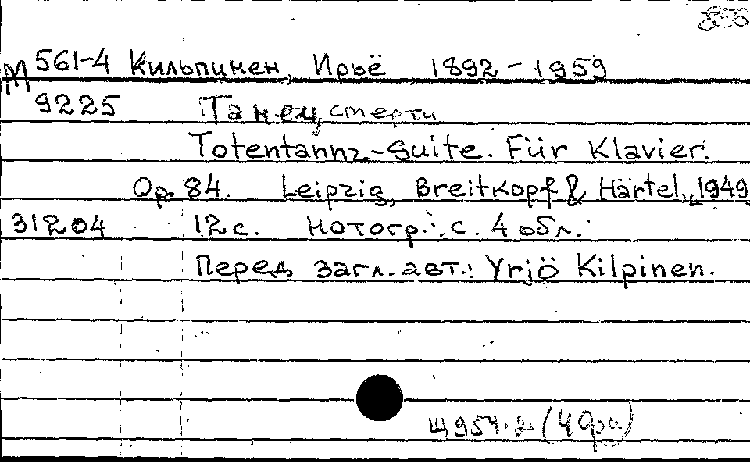 М 561-4 Кильпинен, Ирьё 1892-1959
9225 Танец смерти
Totentannz-Suite. Für Klavier.
Op. 84. Leipzig, Breitkopf & Härtel, 1949
31204 12 с. Нотогр.: с. 4 обл.
Перед загл. авт.: Yrjö Kilpinen.